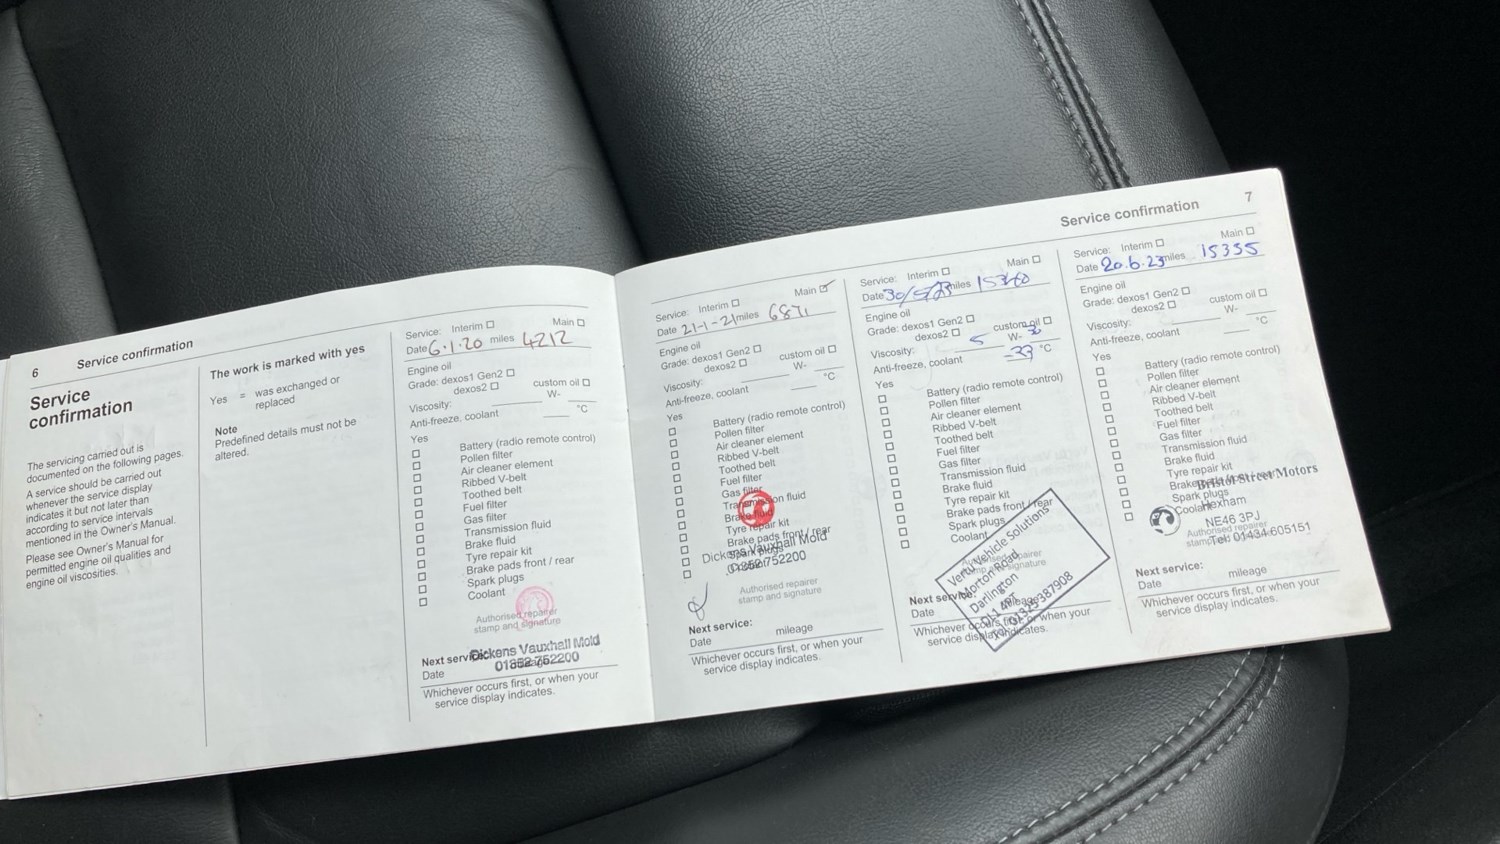 6 Service confirmation
Service
confirmation
The servicing carried out is
documented on the following pages.
A service should be carried out
whenever the service display
indicates it but not later than
according to service intervals
mentioned in the Owner's Manual.
Please see Owner's Manual for
permitted engine oil qualities and
engine oil viscosities.
The work is marked with yes
Yes = was exchanged or
replaced
Note
Predefined details must not be
altered.
Service: Interim ☐ Main ☐
Date 6.1.20 miles 4212
Engine oil
Grade: dexos1 Gen2 ☐
dexos2 ☐ custom oil ☐
Viscosity: W-
Anti-freeze, coolant °C
Yes
☐ Battery (radio remote control)
☐ Pollen filter
☐ Air cleaner element
☐ Ribbed V-belt
☐ Toothed belt
☐ Fuel filter
☐ Gas filter
☐ Transmission fluid
☐ Brake fluid
☐ Tyre repair kit
☐ Brake pads front / rear
☐ Spark plugs
☐ Coolant
Authorised repairer
stamp and signature
Dickens Vauxhall Mold
01352 752200
Next service:
Date
Whichever occurs first, or when your
service display indicates.
Service: Interim ☐ Main ☑
Date 21-1-21 miles
Engine oil
Grade: dexos1 Gen2 ☐
dexos2 ☐ custom oil ☐
Viscosity: W-
Anti-freeze, coolant °C
Yes
☐ Battery (radio remote control)
☐ Pollen filter
☐ Air cleaner element
☐ Ribbed V-belt
☐ Toothed belt
☐ Fuel filter
☐ Gas filter
☐ Transmission fluid
☐ Brake fluid
☐ Tyre repair kit
☐ Brake pads front / rear
☐ Spark plugs
☐ Coolant
Dickens Vauxhall Mold
01352 752200
Authorised repairer
stamp and signature
Next service:
Date mileage
Whichever occurs first, or when your
service display indicates.
Service confirmation 7
Service: Interim ☐ Main ☐
Date 30/5/23 miles
Engine oil
Grade: dexos1 Gen2 ☐
dexos2 ☐ custom oil ☐
Viscosity: 5 W- 30
Anti-freeze, coolant °C
Yes
☐ Battery (radio remote control)
☐ Pollen filter
☐ Air cleaner element
☐ Ribbed V-belt
☐ Toothed belt
☐ Fuel filter
☐ Gas filter
☐ Transmission fluid
☐ Brake fluid
☐ Tyre repair kit
☐ Brake pads front / rear
☐ Spark plugs
☐ Coolant
Authorised repairer
stamp and signature
Vertu Vehicle Solutions
Morton Road
Darlington
DL1 4PT
01325387908
Next service:
Date mileage
Whichever occurs first, or when your
service display indicates.
Service: Interim ☐ Main ☐
Date 20.6.23 miles 15355
Engine oil
Grade: dexos1 Gen2 ☐
dexos2 ☐ custom oil ☐
Viscosity: W-
Anti-freeze, coolant °C
Yes
☐ Battery (radio remote control)
☐ Pollen filter
☐ Air cleaner element
☐ Ribbed V-belt
☐ Toothed belt
☐ Fuel filter
☐ Gas filter
☐ Transmission fluid
☐ Brake fluid
☐ Tyre repair kit
☐ Brake pads front / rear
☐ Spark plugs
☐ Coolant
Bristol Street Motors
Hexham
NE46 3PJ
Tel: 01434 605151
Authorised repairer
stamp and signature
Next service:
Date mileage
Whichever occurs first, or when your
service display indicates.